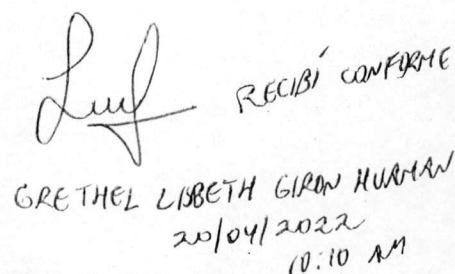 RECIBÍ CONFORME
GRETHEL LISBETH GIRON HUAMAN
20/04/2022
10:10 AM